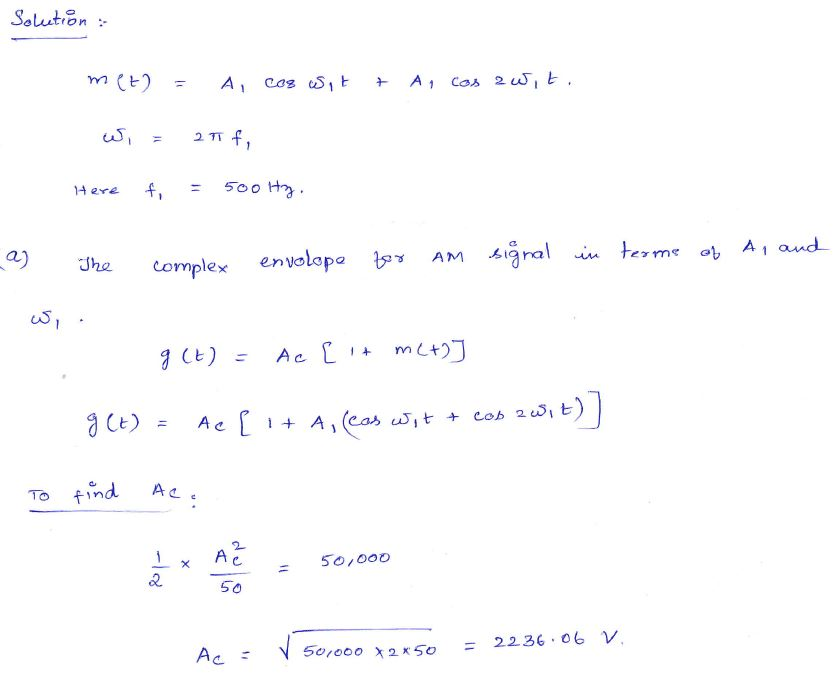 Solution :-
m(t) = A₁ cos ω₁t + A₁ cos 2ω₁t.
ω₁ = 2π f₁
Here f₁ = 500 Hz.
a) The complex envelope for AM signal in terms of A₁ and
ω₁ .
g(t) = Ac [ 1 + m(t)]
g(t) = Ac [ 1 + A₁ (cos ω₁t + cos 2ω₁t)]
To find Ac :
1/2 × Ac²/50 = 50,000
Ac = √(50,000 × 2 × 50) = 2236.06 V.